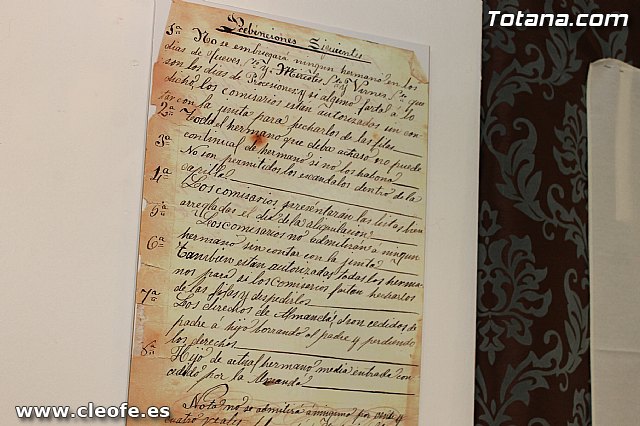 Totana.com
Prebenciones Siguientes
1ª No se embriagará ningun hermano en los
dias de Jueves Sto y Miercoles Sto y Viernes Sto que
son los dias de Procesiones y si alguno faltal a lo
dicho, los comisarios estan autorizados un con
tar con la junta para hecharlos de las filas
2ª Todo el hermano que deba actraso no puede
continuar de hermano si no los habona
3ª No son permitidos los escandalos dentro de la
capilla
4ª Los comisarios presentaran las listas bien
arregladas el dia de la
5ª Los comisarios no admitiran á ningun
hermano sin contar con la junta
6ª Tambien estan autorizadas todas los herma
nos para si los Comisarios faltan hecharlos
de las filas y despedirlos
7ª Los derechos de Almanda, dron cedidos de
padre a hijo borrando al padre y perdiendo
los derechos
8ª Hijo de actual hermano media entrada con
por la Almanda
Nota no se admitirá a ninguno por veinte y
cuatro reales
www.cleofe.es